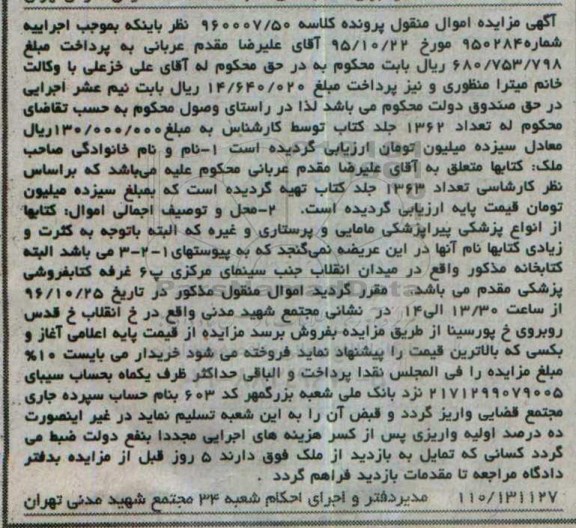 آگهی مزایده اموال منقول پرونده کلاسه ۹۶۰۰۰۷/۵۰ نظر باینکه بموجب اجراییه
شماره۹۵۰۲۸۴ مورخ ۹۵/۱۰/۲۲ آقای علیرضا مقدم عربانی به پرداخت مبلغ
۶۸۰/۷۵۳/۷۹۸ ریال بابت محکوم به در حق محکوم له آقای علی خزعلی با وکالت
خانم میترا منظوری و نیز پرداخت مبلغ ۱۴/۶۴۰/۰۲۰ ریال بابت نیم عشر اجرایی
در حق صندوق دولت محکوم می باشد لذا در راستای وصول محکوم به حسب تقاضای
محکوم له تعداد ۱۳۶۲ جلد کتاب توسط کارشناس به مبلغ۱۳۰/۰۰۰/۰۰۰ریال
معادل سیزده میلیون تومان ارزیابی گردیده است ۱-نام و نام خانوادگی صاحب
ملک: کتابها متعلق به آقای علیرضا مقدم عربانی محکوم علیه می‌باشد که براساس
نظر کارشناسی تعداد ۱۳۶۳ جلد کتاب تهیه گردیده است که بمبلغ سیزده میلیون
تومان قیمت پایه ارزیابی گردیده است. ۲-محل و توصیف اجمالی اموال: کتابها
از انواع پزشکی پیراپزشکی مامایی و پرستاری و غیره که البته باتوجه به کثرت و
زیادی کتابها نام آنها در این عریضه نمی‌گنجد که به پیوستهای۱-۲-۳ می باشد البته
کتابخانه مذکور واقع در میدان انقلاب جنب سینمای مرکزی پ۶ غرفه کتابفروشی
پزشکی مقدم می باشد . مقرر گردید اموال منقول مذکور در تاریخ ۹۶/۱۰/۲۵
از ساعت ۱۳/۳۰ الی۱۴ در نشانی مجتمع شهید مدنی واقع در خ انقلاب خ قدس
روبروی خ پورسینا از طریق مزایده بفروش برسد مزایده از قیمت پایه اعلامی آغاز و
بکسی که بالاترین قیمت را پیشنهاد نماید فروخته می شود خریدار می بایست ۱۰%
مبلغ مزایده را فی المجلس نقدا پرداخت و الباقی حداکثر ظرف یکماه بحساب سیبای
۲۱۷۱۲۹۹۰۷۹۰۰۵ نزد بانک ملی شعبه بزرگمهر کد ۶۰۳ بنام حساب سپرده جاری
مجتمع قضایی واریز گردد و قبض آن را به این شعبه تسلیم نماید در غیر اینصورت
ده درصد اولیه واریزی پس از کسر هزینه های اجرایی مجددا بنفع دولت ضبط می
گردد کسانی که تمایل به بازدید از ملک فوق دارند ۵ روز قبل از مزایده بدفتر
دادگاه مراجعه تا مقدمات بازدید فراهم گردد .
۱۱۰/۱۳۱۱۲۷ مدیردفتر و اجرای احکام شعبه ۳۴ مجتمع شهید مدنی تهران